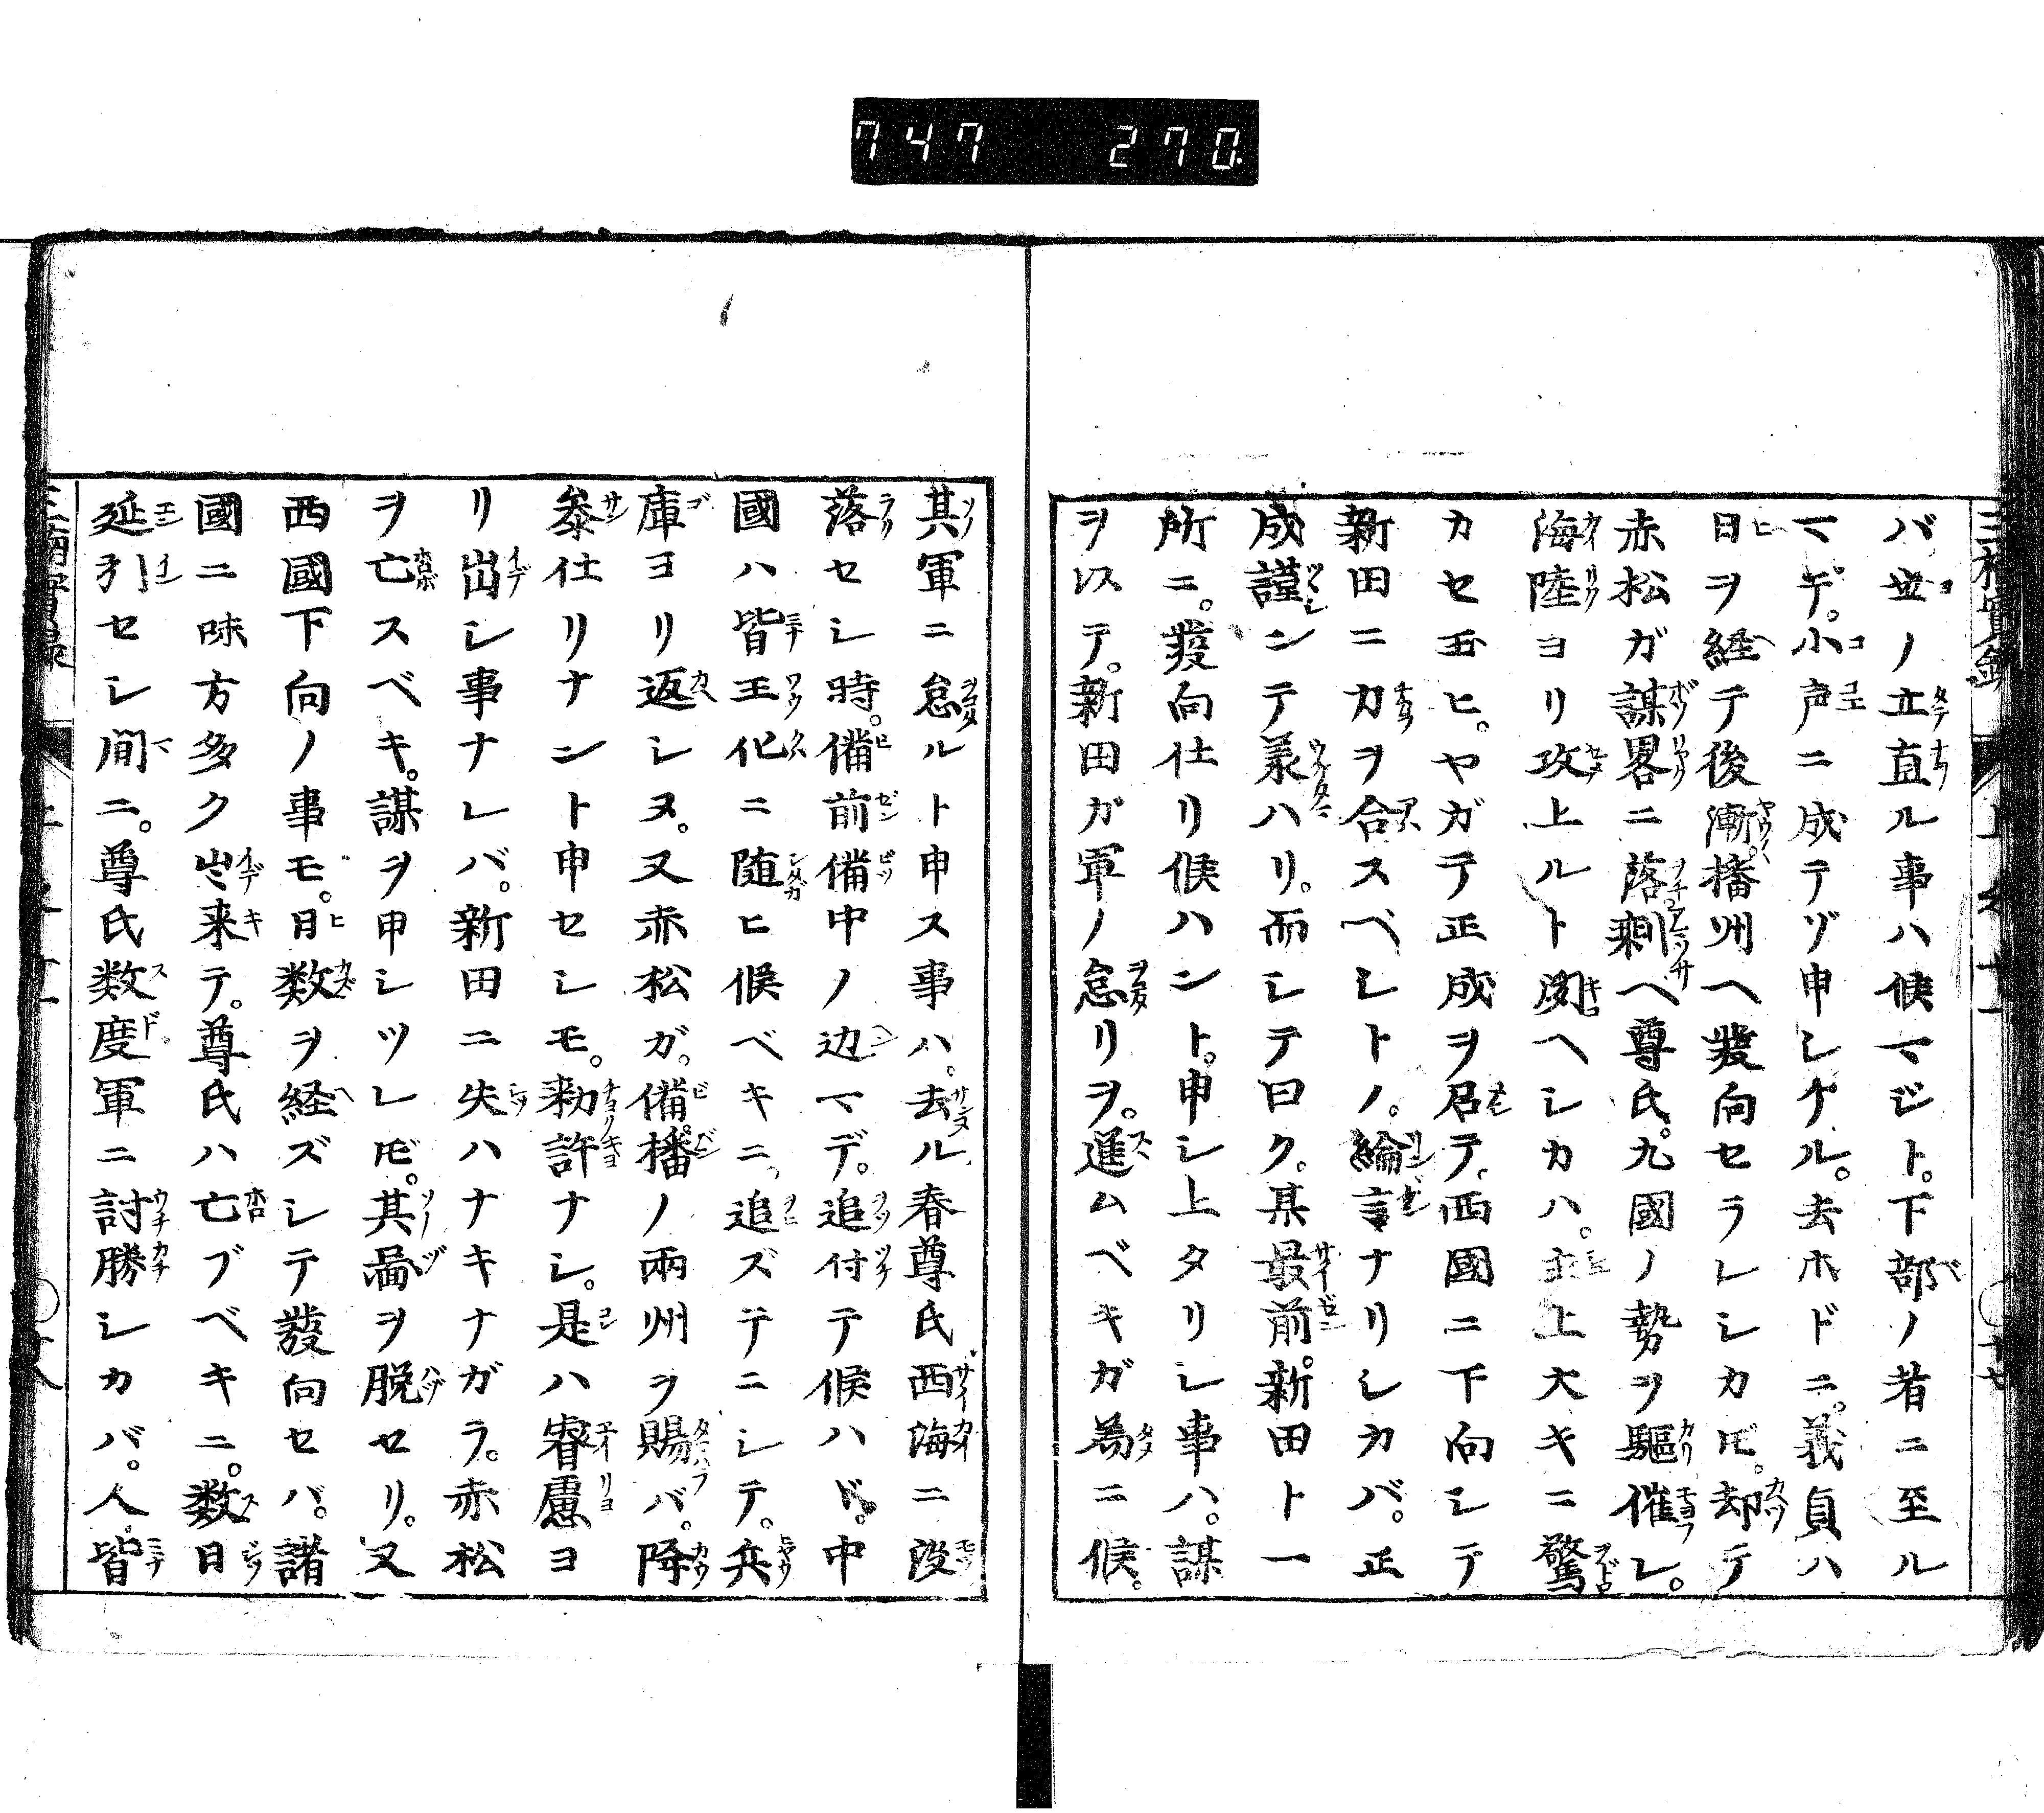 747 270
バ世ノ立直ル事ハ候マジト。下部ノ者ニ至ル
マデ。小声ニ成テゾ申シケル。去ホドニ。義貞ハ
日ヲ経テ後漸。播州ヘ發向セラレシカ𪜈。却テ
赤松ガ謀畧ニ落。剰ヘ尊氏。九國ノ勢ヲ驅催レ。
海陸ヨリ攻上ルト聞ヘシカハ。主上大キニ驚
カセ玉ヒ。ヤガテ正成ヲ召テ。西國ニ下向シテ
新田ニ力ヲ合スベシトノ。綸言ナリシカバ。正
成謹ンテ義ハリ。而シテ曰ク。某最前。新田ト一
所ニ。發向仕リ候ハント。申シ上タリシ事ハ。謀
ヲ以テ。新田ガ軍ノ怠リヲ。進ムベキガ為ニ候。
其軍ニ怠ルト申ス事ハ。去ル春尊氏西海ニ没
落セシ時。備前備中ノ辺マデ。追付テ候ハヾ。中
國ハ皆王化ニ随ヒ候ベキニ。追ズテニシテ。兵
庫ヨリ返シヌ。又赤松ガ。備。播ノ兩州ヲ賜バ。降
参仕リナント申セシモ。勅許ナシ。是ハ睿慮ヨ
リ出シ事ナレバ。新田ニ失ハナキナガラ。赤松
ヲ亡スベキ。謀ヲ申シツレ𪜈。其啚ヲ脱セリ。又
西國下向ノ事モ。日数ヲ経ズシテ發向セバ。諸
國ニ味方多ク出来テ。尊氏ハ亡ブベキニ。数日
延引セシ間ニ。尊氏数度軍ニ討勝シカバ。人皆